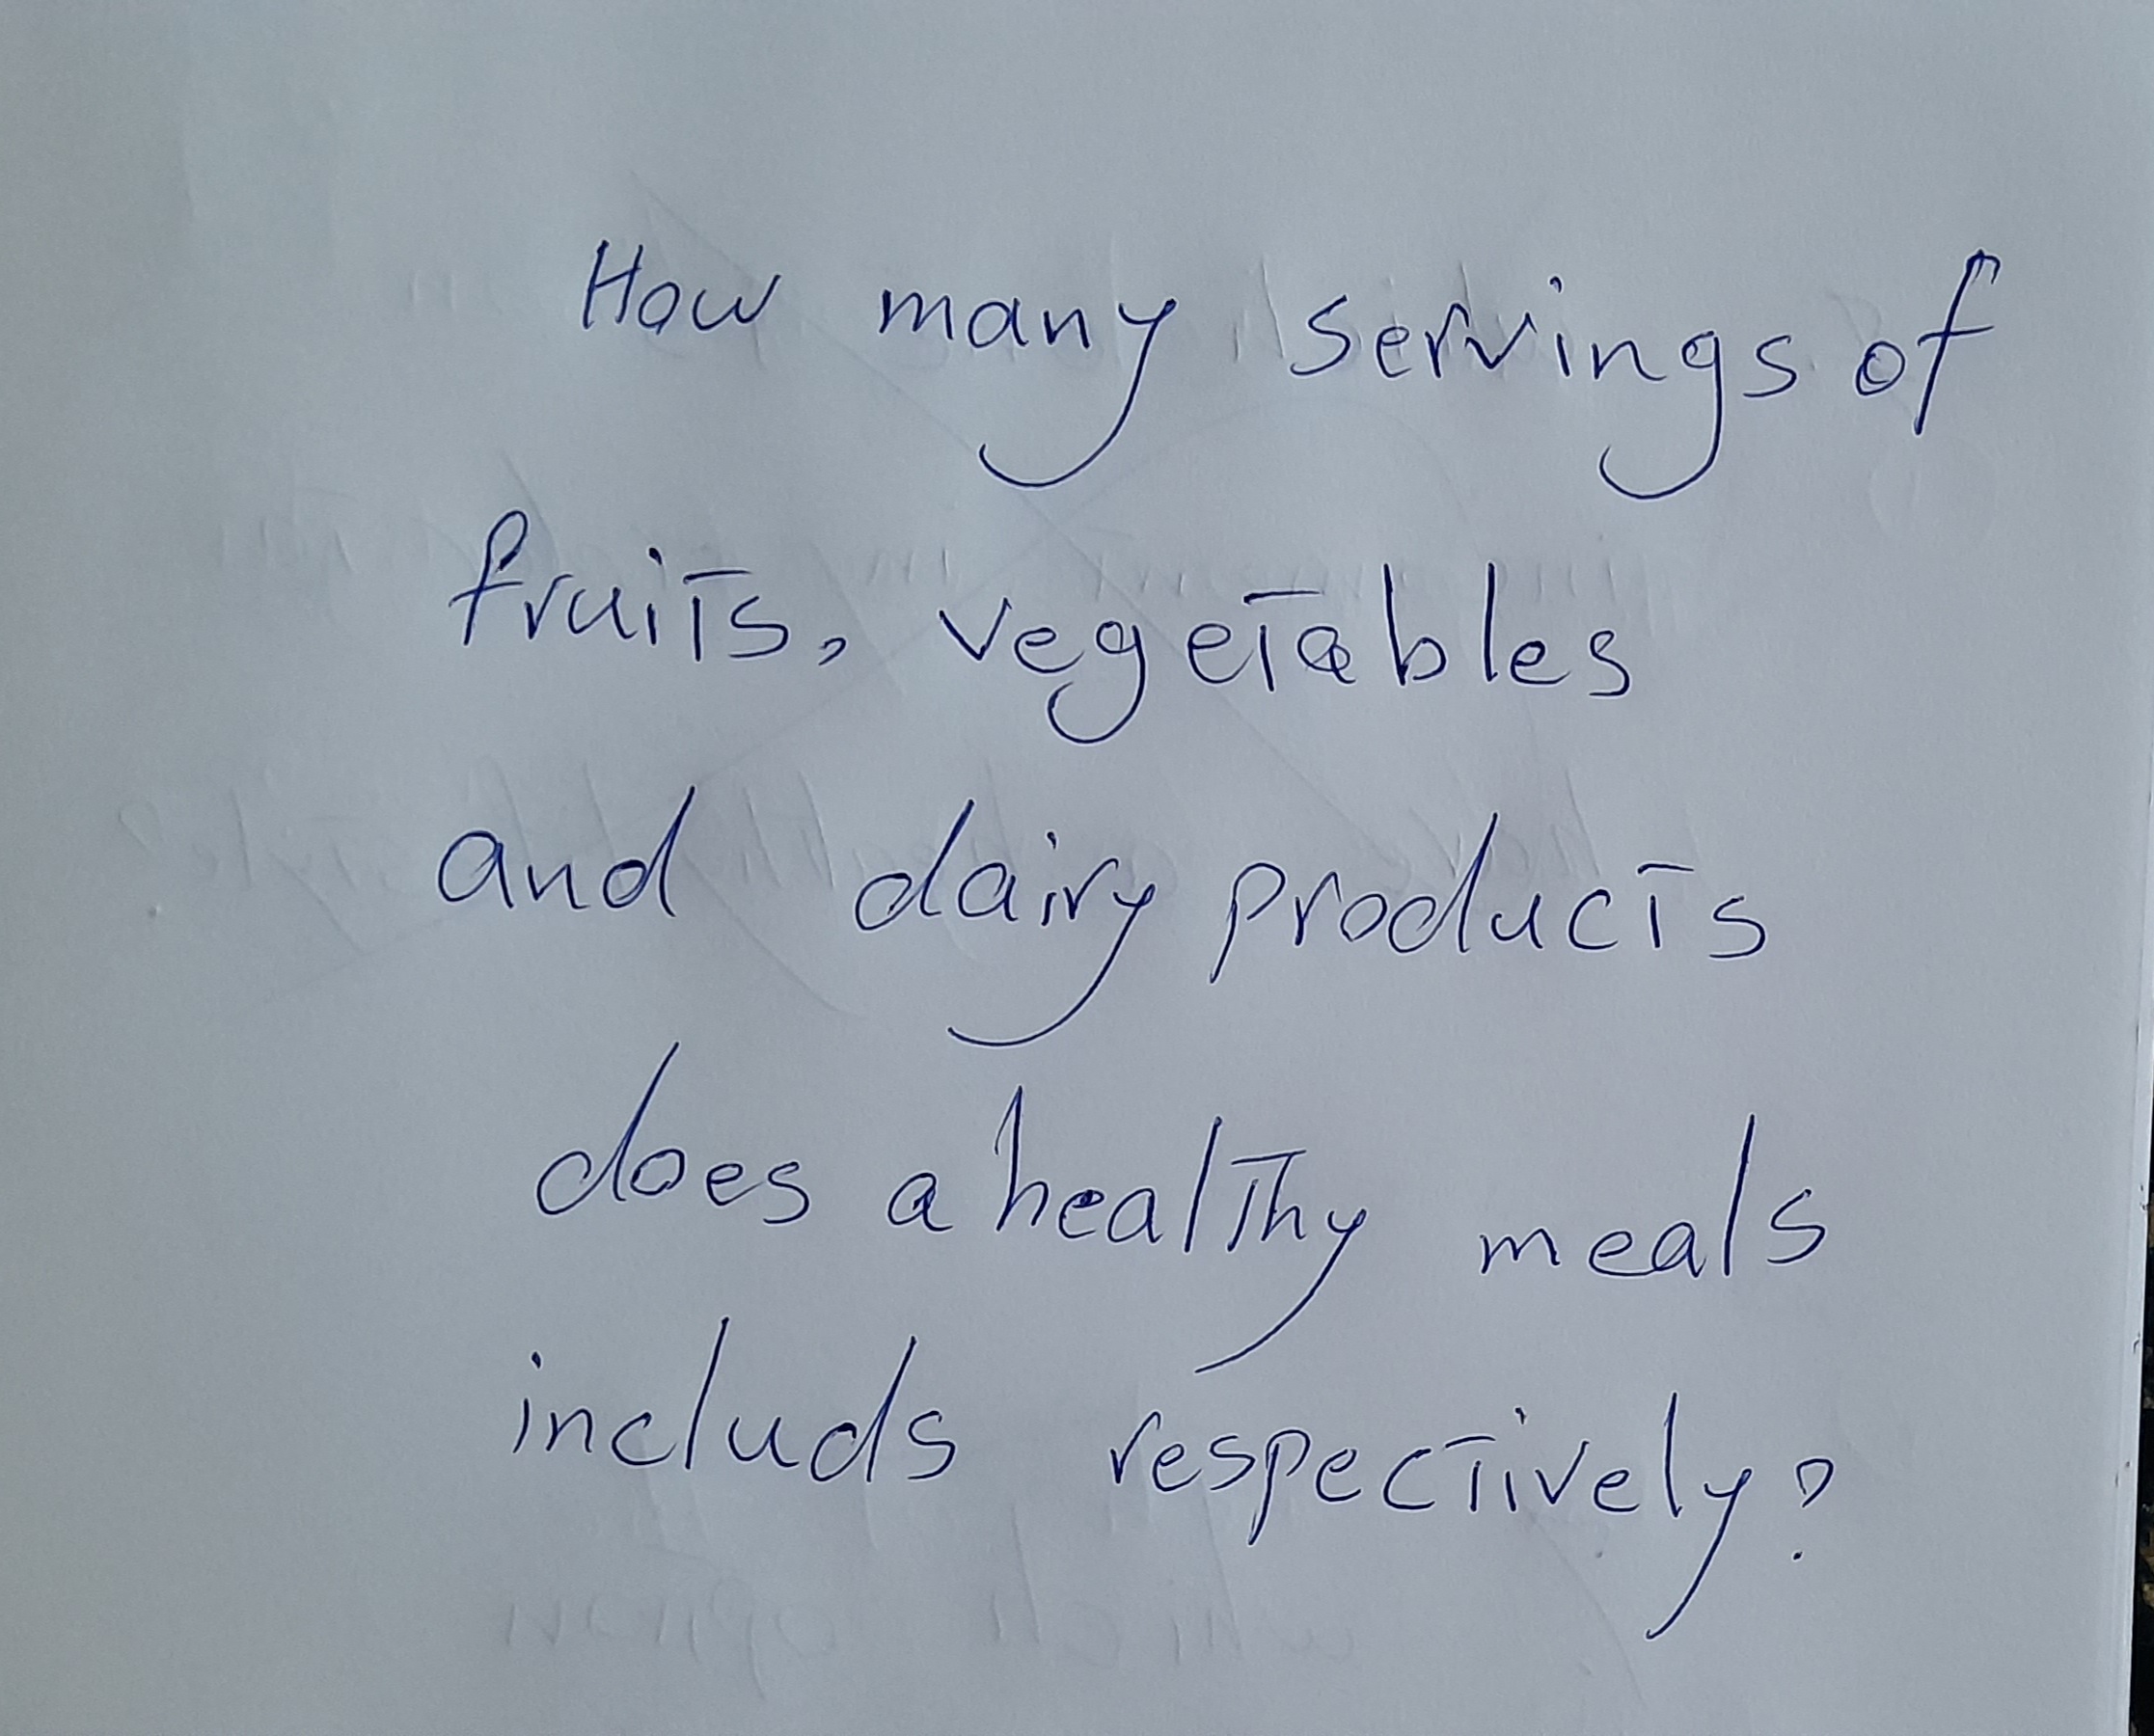 How many servings of
fruits, vegetables
and dairy products
does a healthy meals
includs respectively?